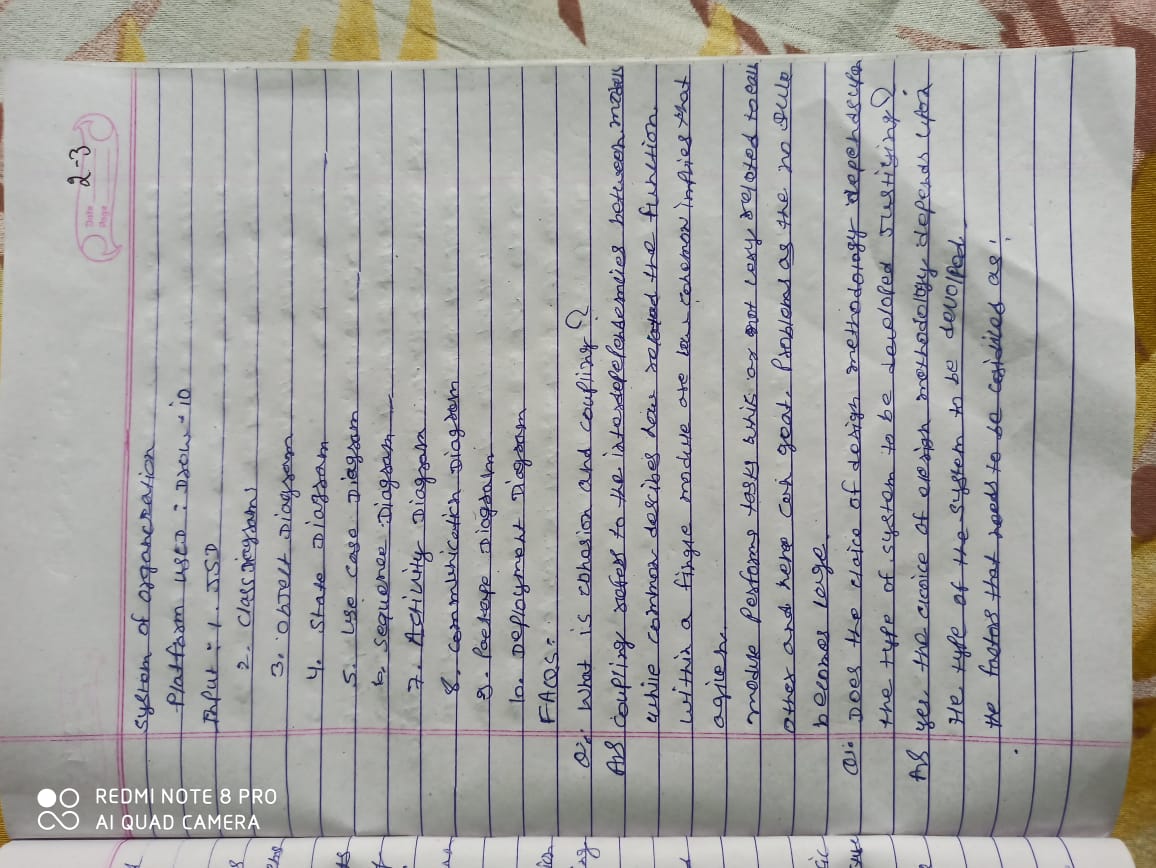 2-3
Date
Page
System of organcration
Platform USED : Drow-io
Input : 1. JSD
2. Class Diagrams
3. Object Diagram
4. State Diagram
5. Use Case Diagram
6. Sequence Diagram
7. Activity Diagram
8. Communication Diagram
9. Package Diagram
10. Deployment Diagram
FAQS:
Q: What is cohosion and coupling?
Ans coupling refers to the interdependencies between
while common descibes how the function
within a module are low cohemon that

module Performs tasks not very related to
other and hence can Problems as the
becomes large
Q: Does the choice of design methodology depends upon
the type of system to be developed
Ans yes, the choice of design methodology depends upon
the type of the system to be devolped
the factors that needs to be as:
REDMI NOTE 8 PRO
AI QUAD CAMERA